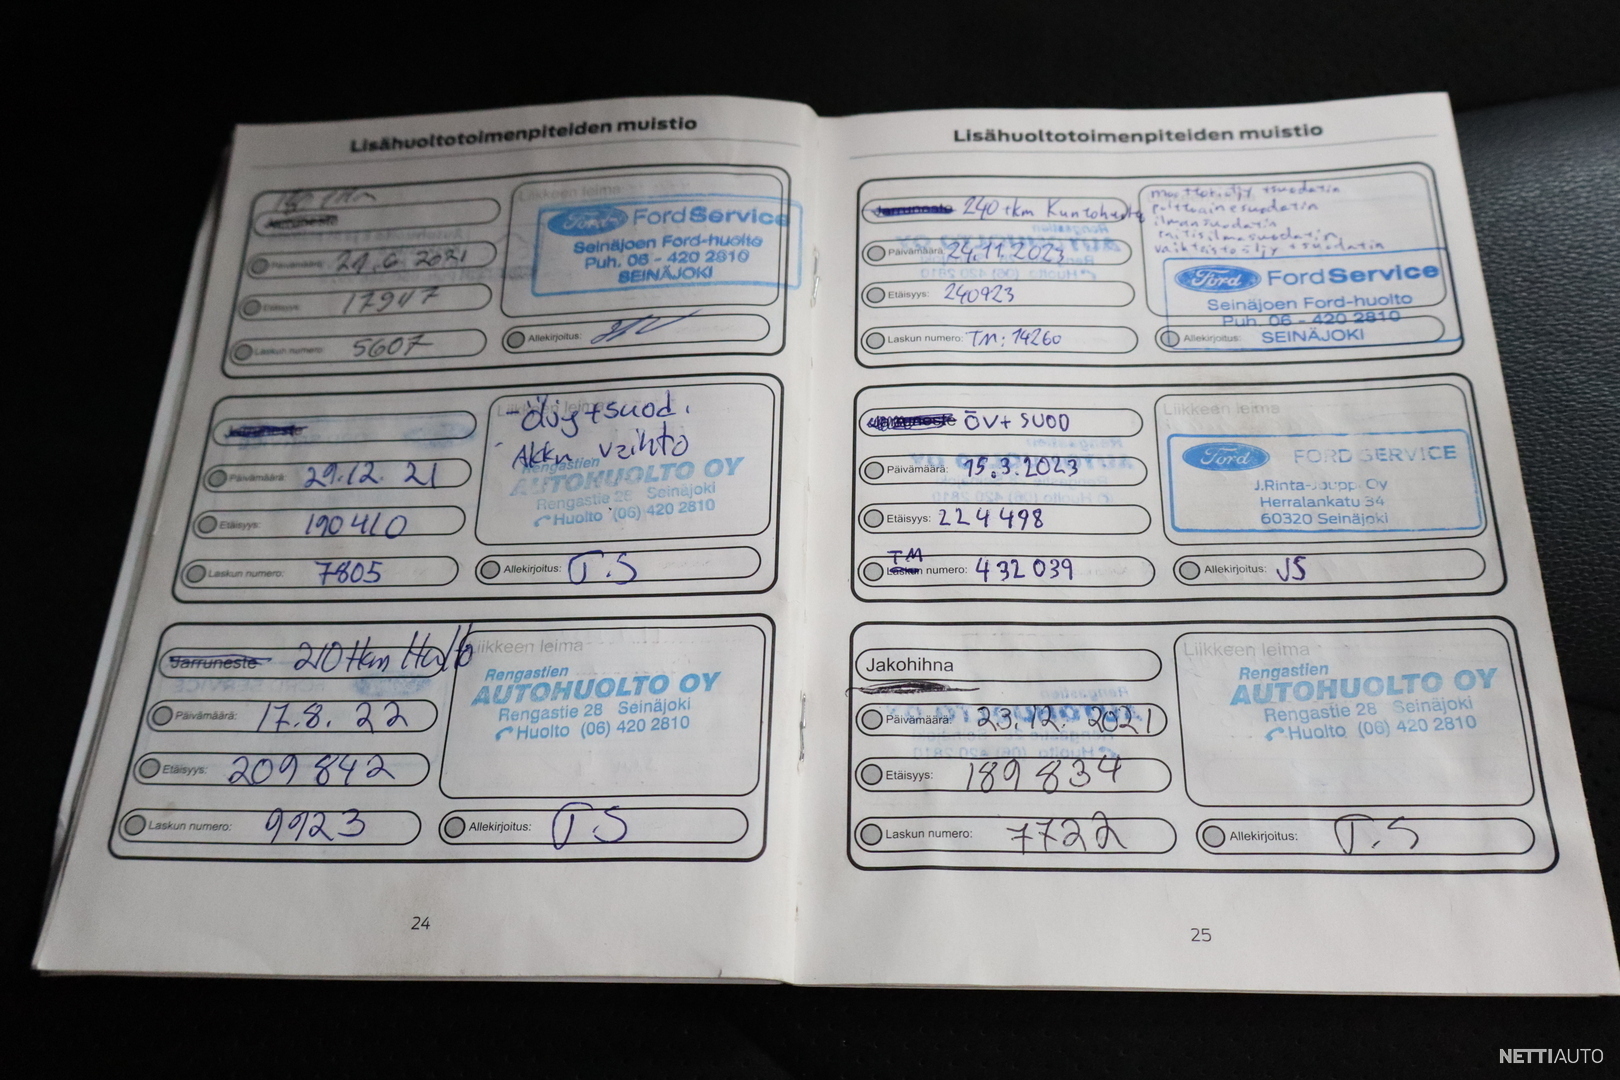 Lisähuoltotoimenpiteiden muistio
Jarruneste
Liikkeen leima
Ford FordService
Seinäjoen Ford-huolto
Puh. 06 - 420 2810
SEINÄJOKI
Päivämäärä: 21.6 2021
Etäisyys:
Laskun numero: 5607
Allekirjoitus:
Jarruneste
Liikkeen leima
- Öljy + suod.
- Akku vaihto
Rengastien
AUTOHUOLTO OY
Rengastie 28 Seinäjoki
Huolto (06) 420 2810
Päivämäärä: 29.12. 21
Etäisyys: 190410
Laskun numero: 7805
Allekirjoitus: T.S
Jarruneste 210 tkm Huolto
Liikkeen leima
Rengastien
AUTOHUOLTO OY
Rengastie 28 Seinäjoki
Huolto (06) 420 2810
Päivämäärä: 17.8. 22
Etäisyys: 209 842
Laskun numero: 9923
Allekirjoitus: T S
24
Lisähuoltotoimenpiteiden muistio
Jarruneste 240 tkm Kuntohuolto
moottoriöljy + suodatin
polttoainesuodatin
ilmansuodatin
raitisilmasuodatin,
vaihteistoöljy + suodatin
Ford FordService
Seinäjoen Ford-huolto
Puh. 06 - 420 2810
SEINÄJOKI
Päivämäärä: 24.11.2023
Etäisyys: 240923
Laskun numero: TM: 14260
Allekirjoitus:
Jarruneste ÖV+ SUOD
Liikkeen leima
Ford FORD SERVICE
J.Rinta-Jouppi Oy
Herralankatu 34
60320 Seinäjoki
Päivämäärä: 15.3.2023
Etäisyys: 224498
TM
Laskun numero: 432039
Allekirjoitus: JS
Jakohihna
Liikkeen leima
Rengastien
AUTOHUOLTO OY
Rengastie 28 Seinäjoki
Huolto (06) 420 2810
Päivämäärä: 23.12. 2021
Etäisyys: 189 834
Laskun numero: 7722
Allekirjoitus: T.S
25
NETTIAUTO